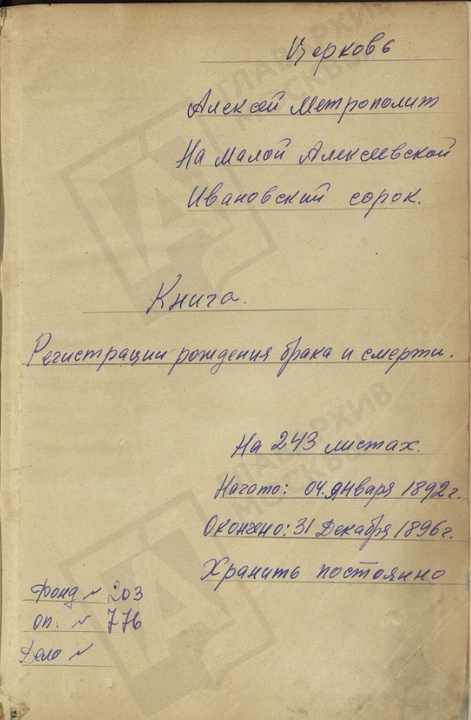 Церковь
Алексей Метрополит
На Малой Алексеевской
Ивановский сорок.
Книга.
Регистрации рождения брака и смерти.
На 243 листах.
Начато: 04. января 1892 г.
Окончено: 31 Декабря 1896 г.
Хранить постоянно
Фонд № 203
оп. № 776
Дело №
ГЛАВАРХИВ
МОСКВЫ
ГЛАВАРХИВ
МОСКВЫ